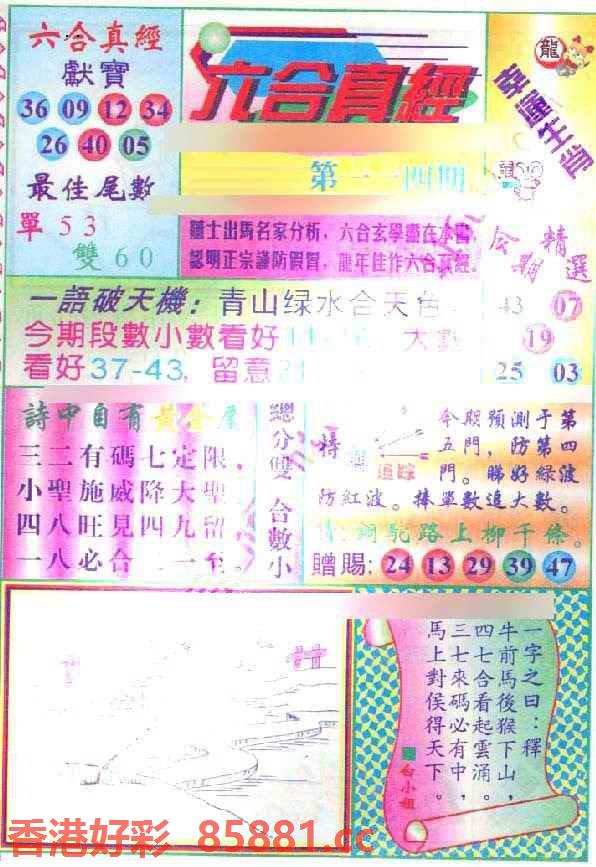 六合真經
獻寶
36 09 12 34
26 40 05
最佳尾數
單 5 3
雙 6 0
六合真經
第一一四期
龍
幸運生肖
鼠
隱士出馬名家分析，六合玄學盡在本書
認明正宗謹防假冒，龍年佳作六合真經.
今期精選
43 07
19
25 03
一語破天機：青山绿水合天色
今期段數小數看好
大數
看好37-43, 留意
詩中自有黃金屋
三二有碼七定限。
小聖施威降大聖
四八旺見四九留
一八必合二一至。
總分雙 合數小
特
追踪
今期預測于第
五門，防第四
門。睇好綠波
防紅波。捧單數追大數。
銅駝路上柳千條。
贈賜: 24 13 29 39 47
一字之曰：釋
牛前馬後猴下山，
四七合看起雲涌。
三七來碼必有中，
馬上對侯得天下。
白小姐
香港好彩 85881.cc